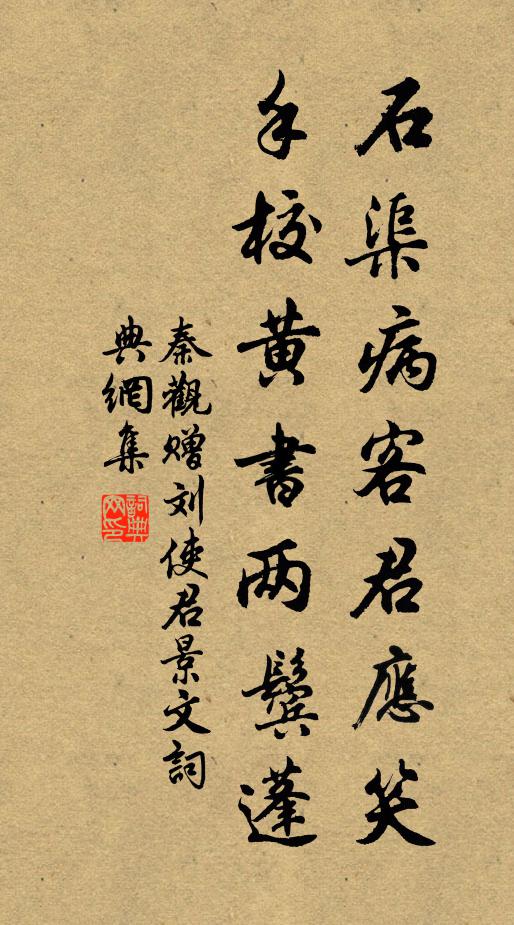 石渠病客君應笑
手校黄書两鬢蓬
秦觀贈刘使君景文詞
典網集
詞典网印